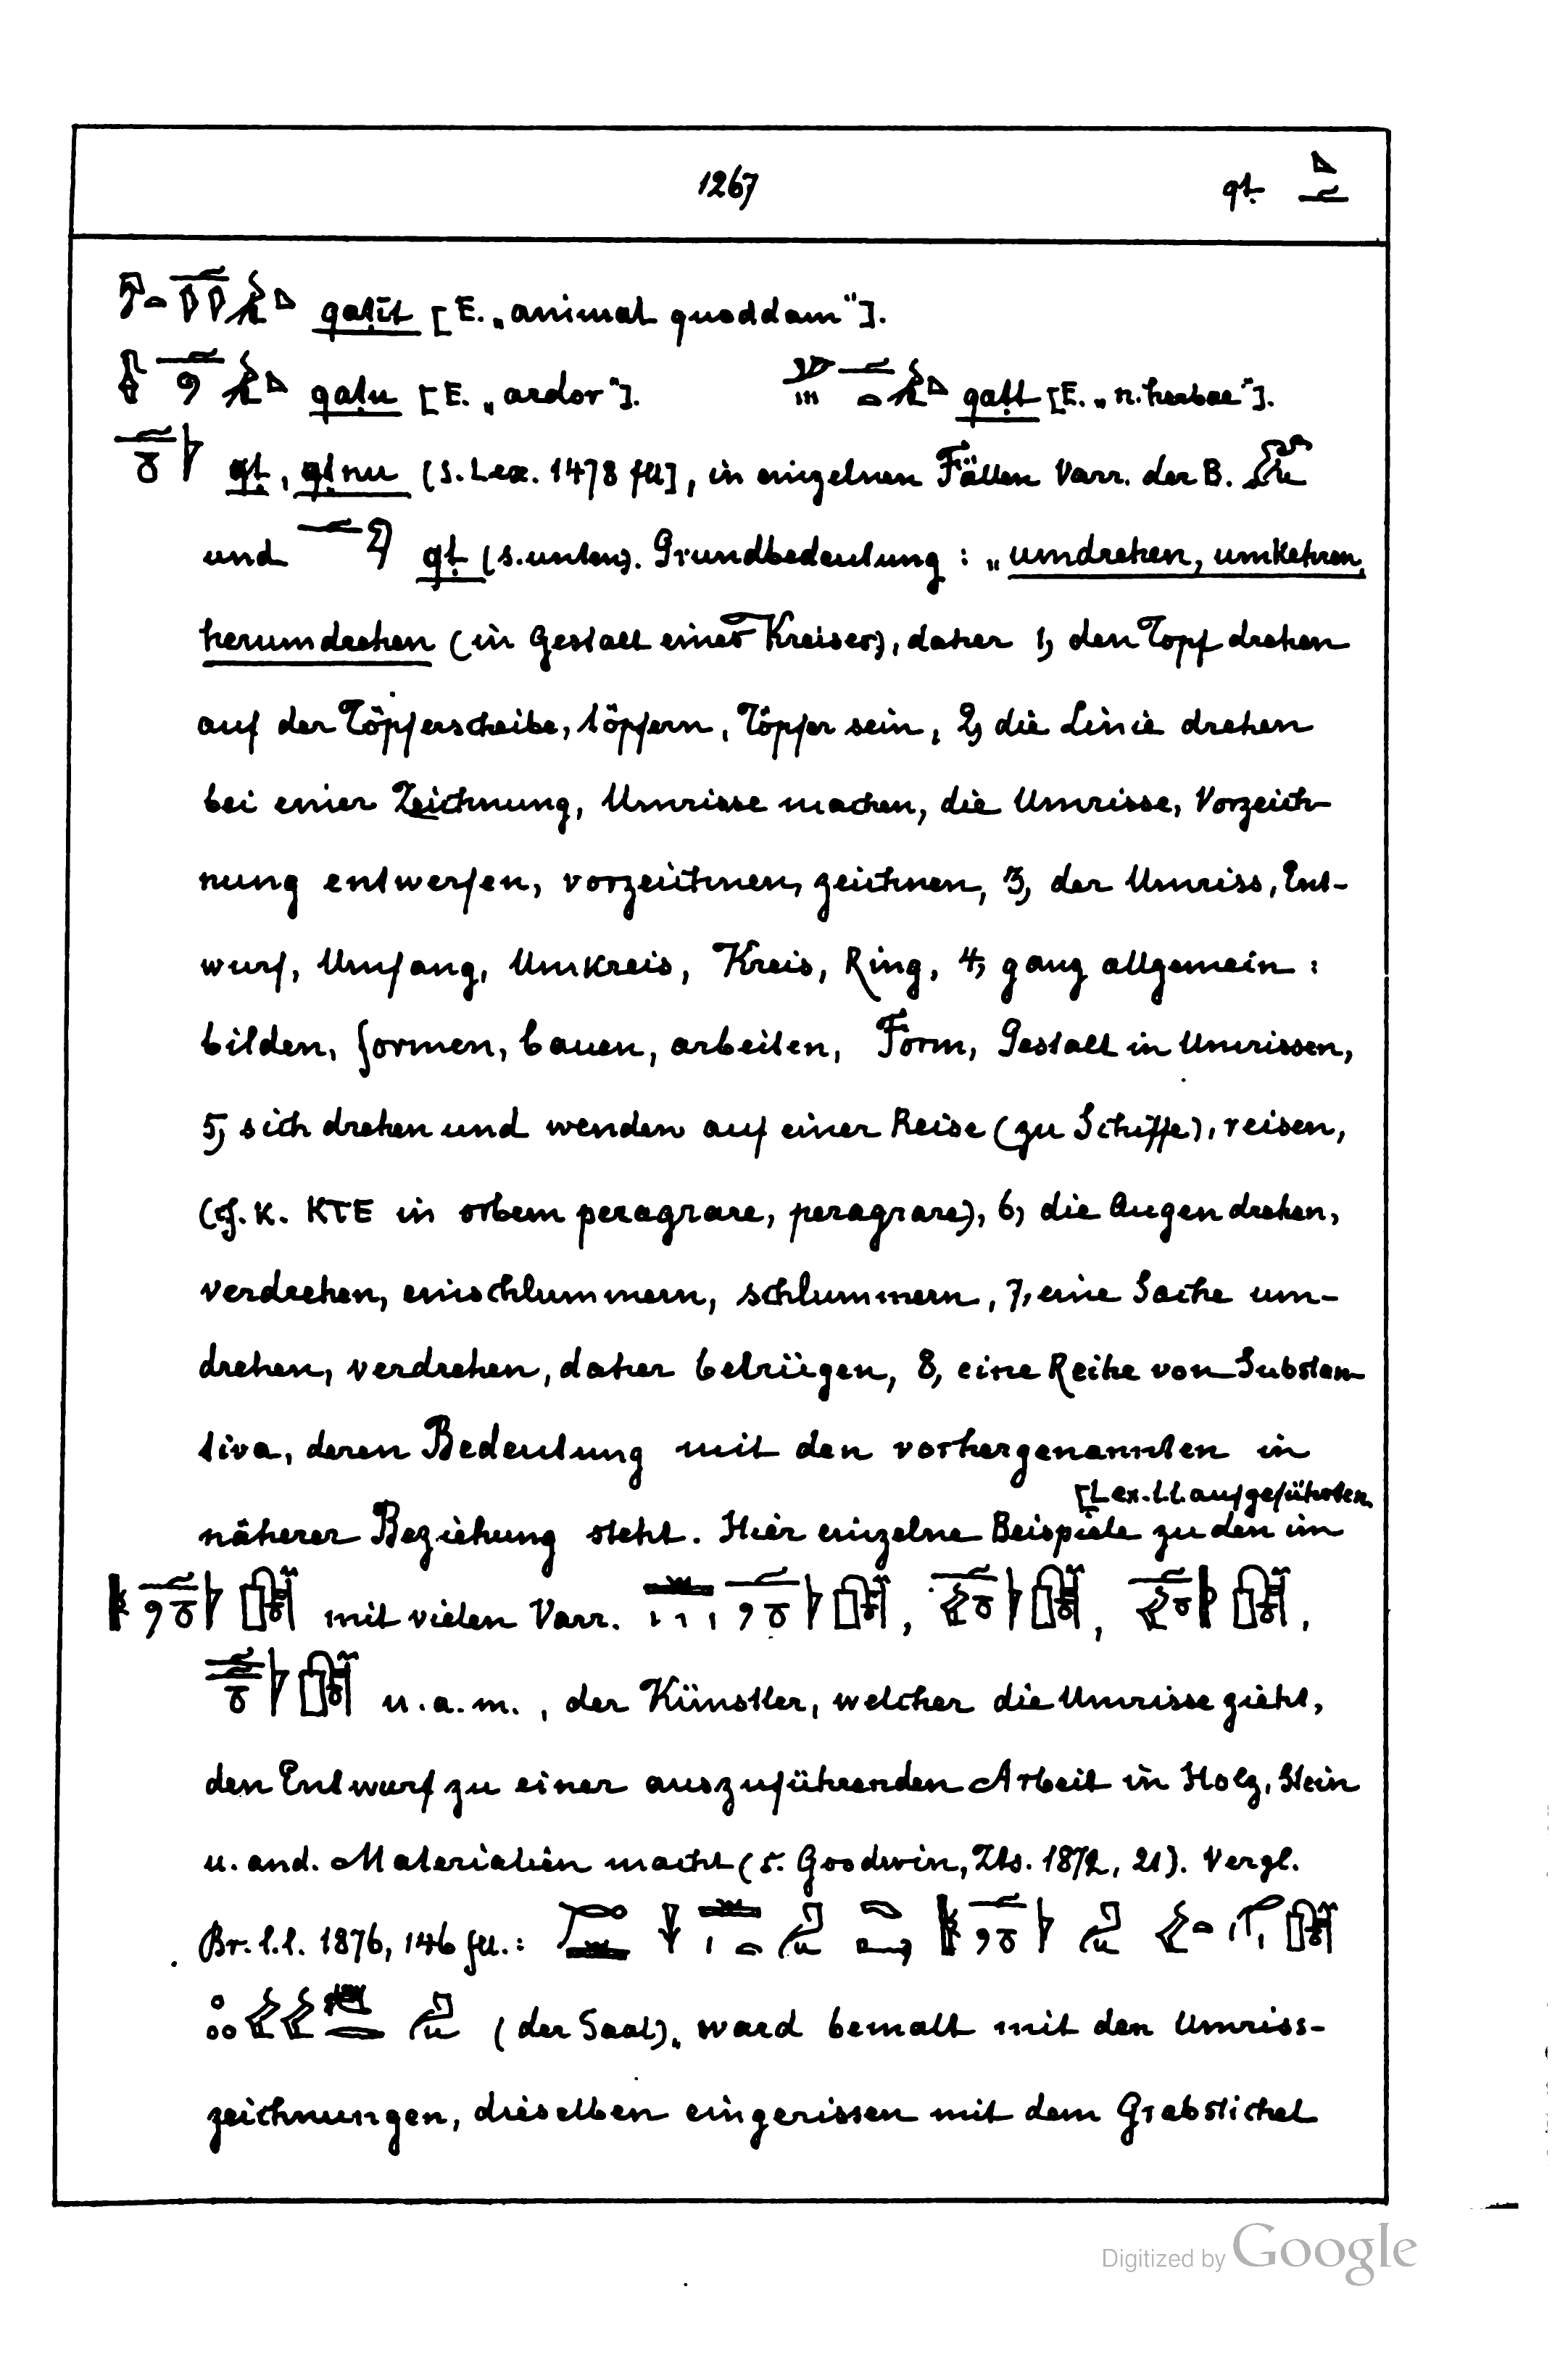 1267 qṭ.
qaṭit [E. „animal quoddam"].
qaṭu [E. „ardor"]. qaṭt [E. „n. herbae"].
qṭ, qṭnu (s. Lex. 1478 fll], in einzelnen Fällen Varr. der B.
und qṭ (s. unten). Grundbedeutung : „umdrehen, umkehren,
herumdrehen (in Gestalt eines Kreises), daher 1, den Topf drehen
auf der Töpferscheibe, töpfern, Töpfer sein, 2, die Linie drehen
bei einer Zeichnung, Umrisse machen, die Umrisse, Vorzeich-
nung entwerfen, vorzeichnen, zeichnen, 3, der Umriss, Ent-
wurf, Umfang, Umkreis, Kreis, Ring, 4, ganz allgemein :
bilden, formen, bauen, arbeiten, Form, Gestalt in Umrissen,
5, sich drehen und wenden auf einer Reise (zu Schiffe), reisen,
(cf. K. KTE in orbem peragrare, peragrare), 6, die Augen drehen,
verdrehen, einschlummern, schlummern, 7, eine Sache um-
drehen, verdrehen, daher betrügen, 8, eine Reihe von Substan-
tiva, deren Bedeutung mit den vorhergenannten in
[Lex. l.l. aufgeführten
näherer Beziehung steht. Hier einzelne Beispiele zu den im
mit vielen Varr. , , ,
u. a. m., der Künstler, welcher die Umrisse zieht,
den Entwurf zu einer auszuführenden Arbeit in Holz, Stein
u. and. Materialien macht (s. Goodwin, Zts. 1872, 21). Vergl.
Br. l.l. 1876, 146 fll.:
(der Saal) „ward bemalt mit den Umriss-
zeichnungen, dieselben eingerissen mit dem Grabstichel
Digitized by Google